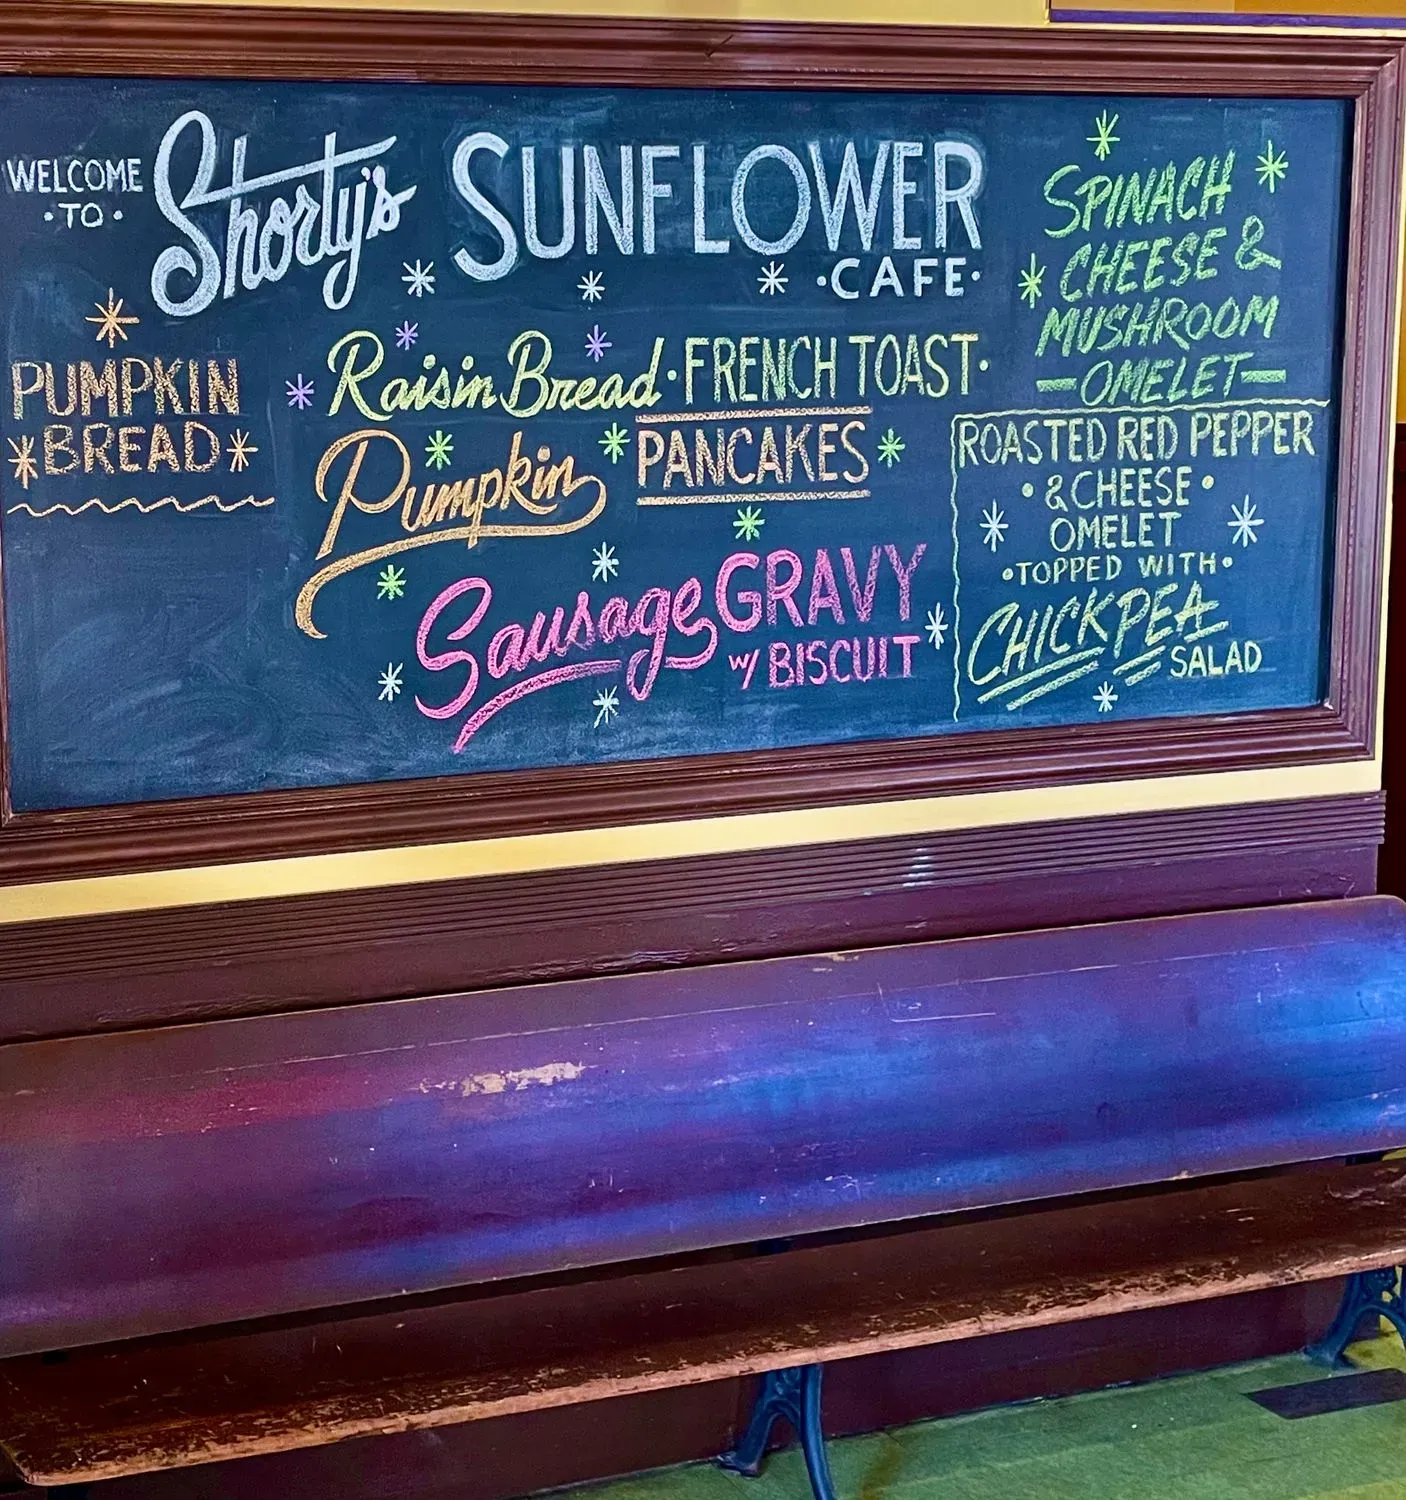 WELCOME
·TO·
Shorty's SUNFLOWER
·CAFE·
PUMPKIN
BREAD
Raisin Bread·FRENCH TOAST·
Pumpkin PANCAKES
Sausage GRAVY
w/ BISCUIT
SPINACH
CHEESE &
MUSHROOM
—OMELET—
ROASTED RED PEPPER
• & CHEESE •
OMELET
•TOPPED WITH•
CHICKPEA
SALAD